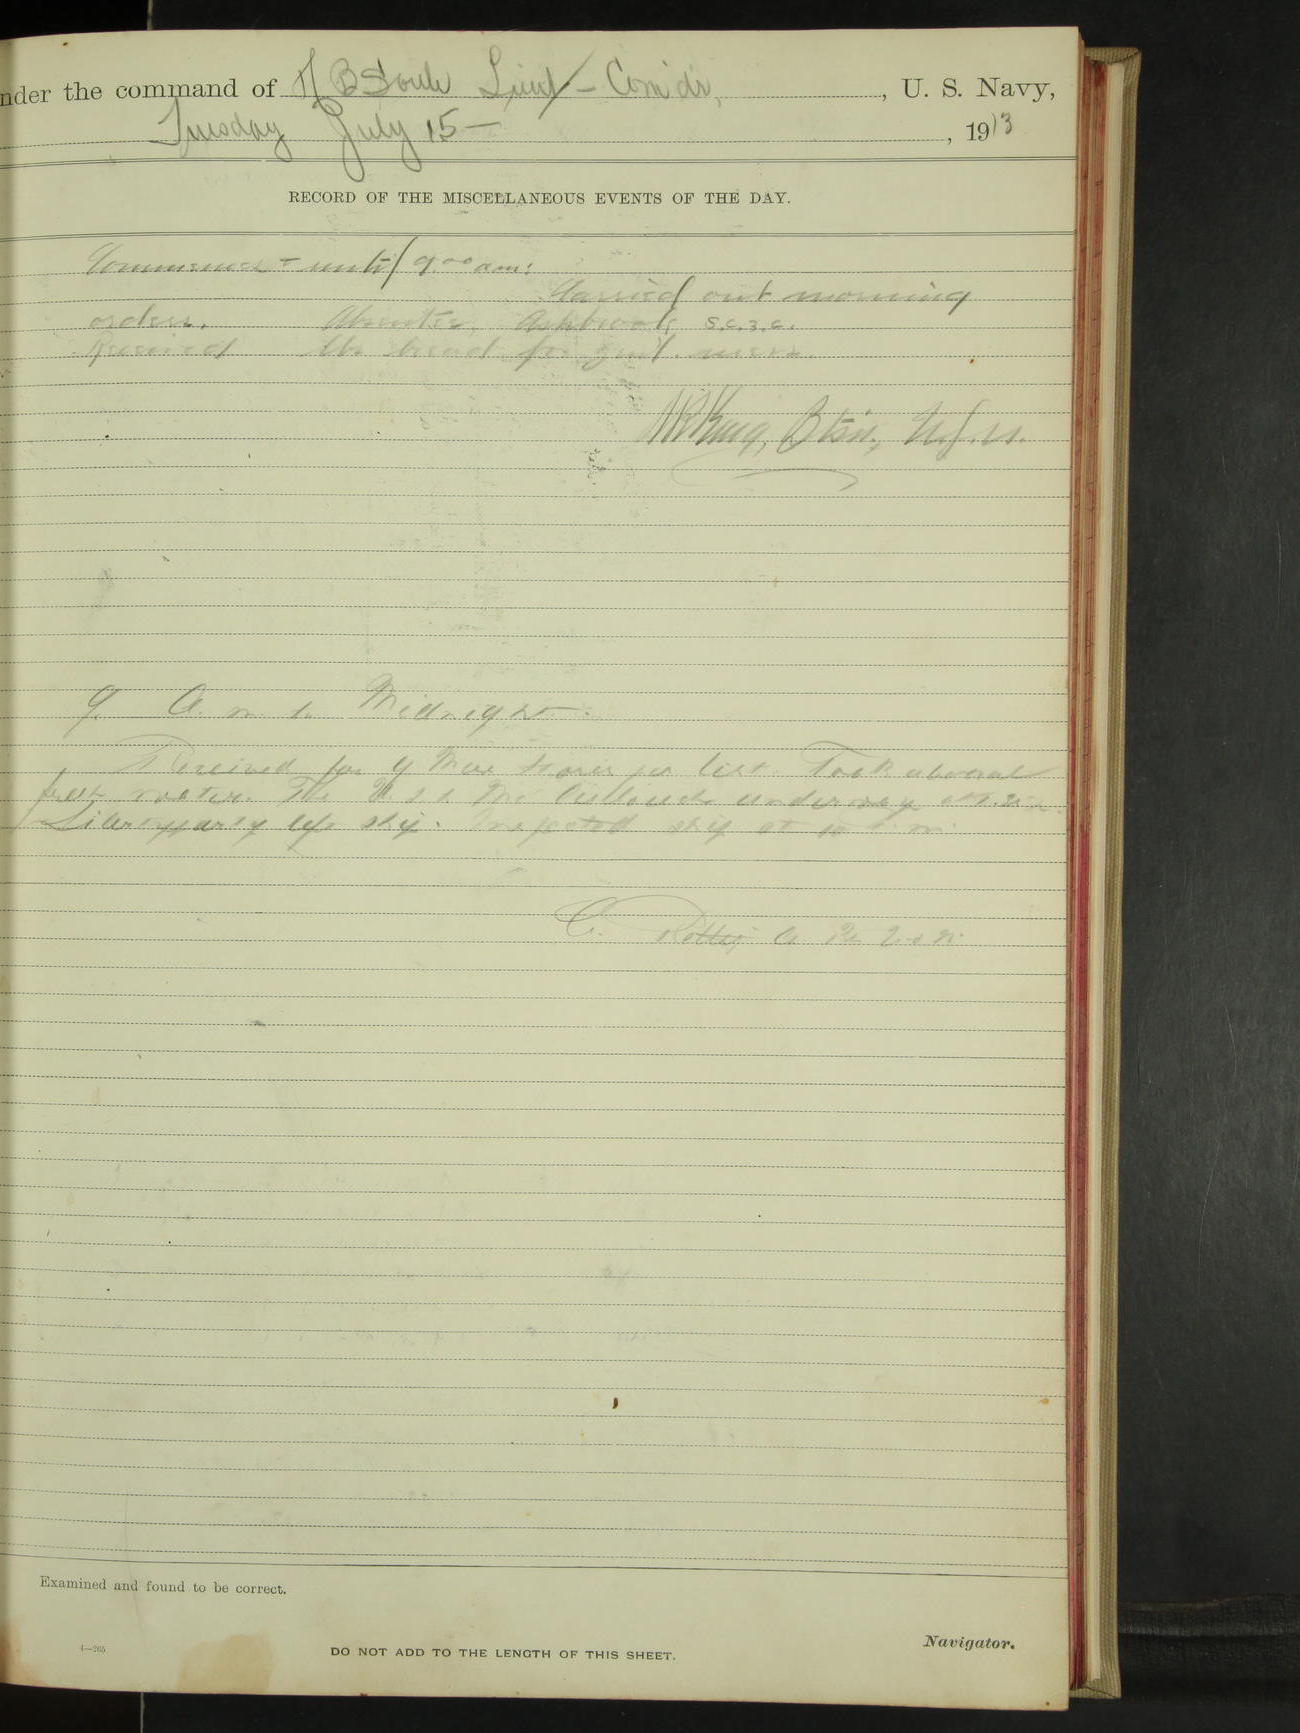 nder the command of H B Soule Lieut-Comdr, , U. S. Navy,
Tuesday July 15 — , 1913
RECORD OF THE MISCELLANEOUS EVENTS OF THE DAY.
Commence - until 9 00 am:
Carried out morning
orders. Absentee, Ashbrook, S.C.3.C.
Received lbs bread for gen'l. mess.
King, Btsn., U.S.N.
9. A. m. to Midnight.
Received for list. Took aboard
fresh water. The U S S underway
Liberty party left ship. Inspected ship at 10 a. m.
C.
Examined and found to be correct.
4—265
DO NOT ADD TO THE LENGTH OF THIS SHEET.
Navigator.